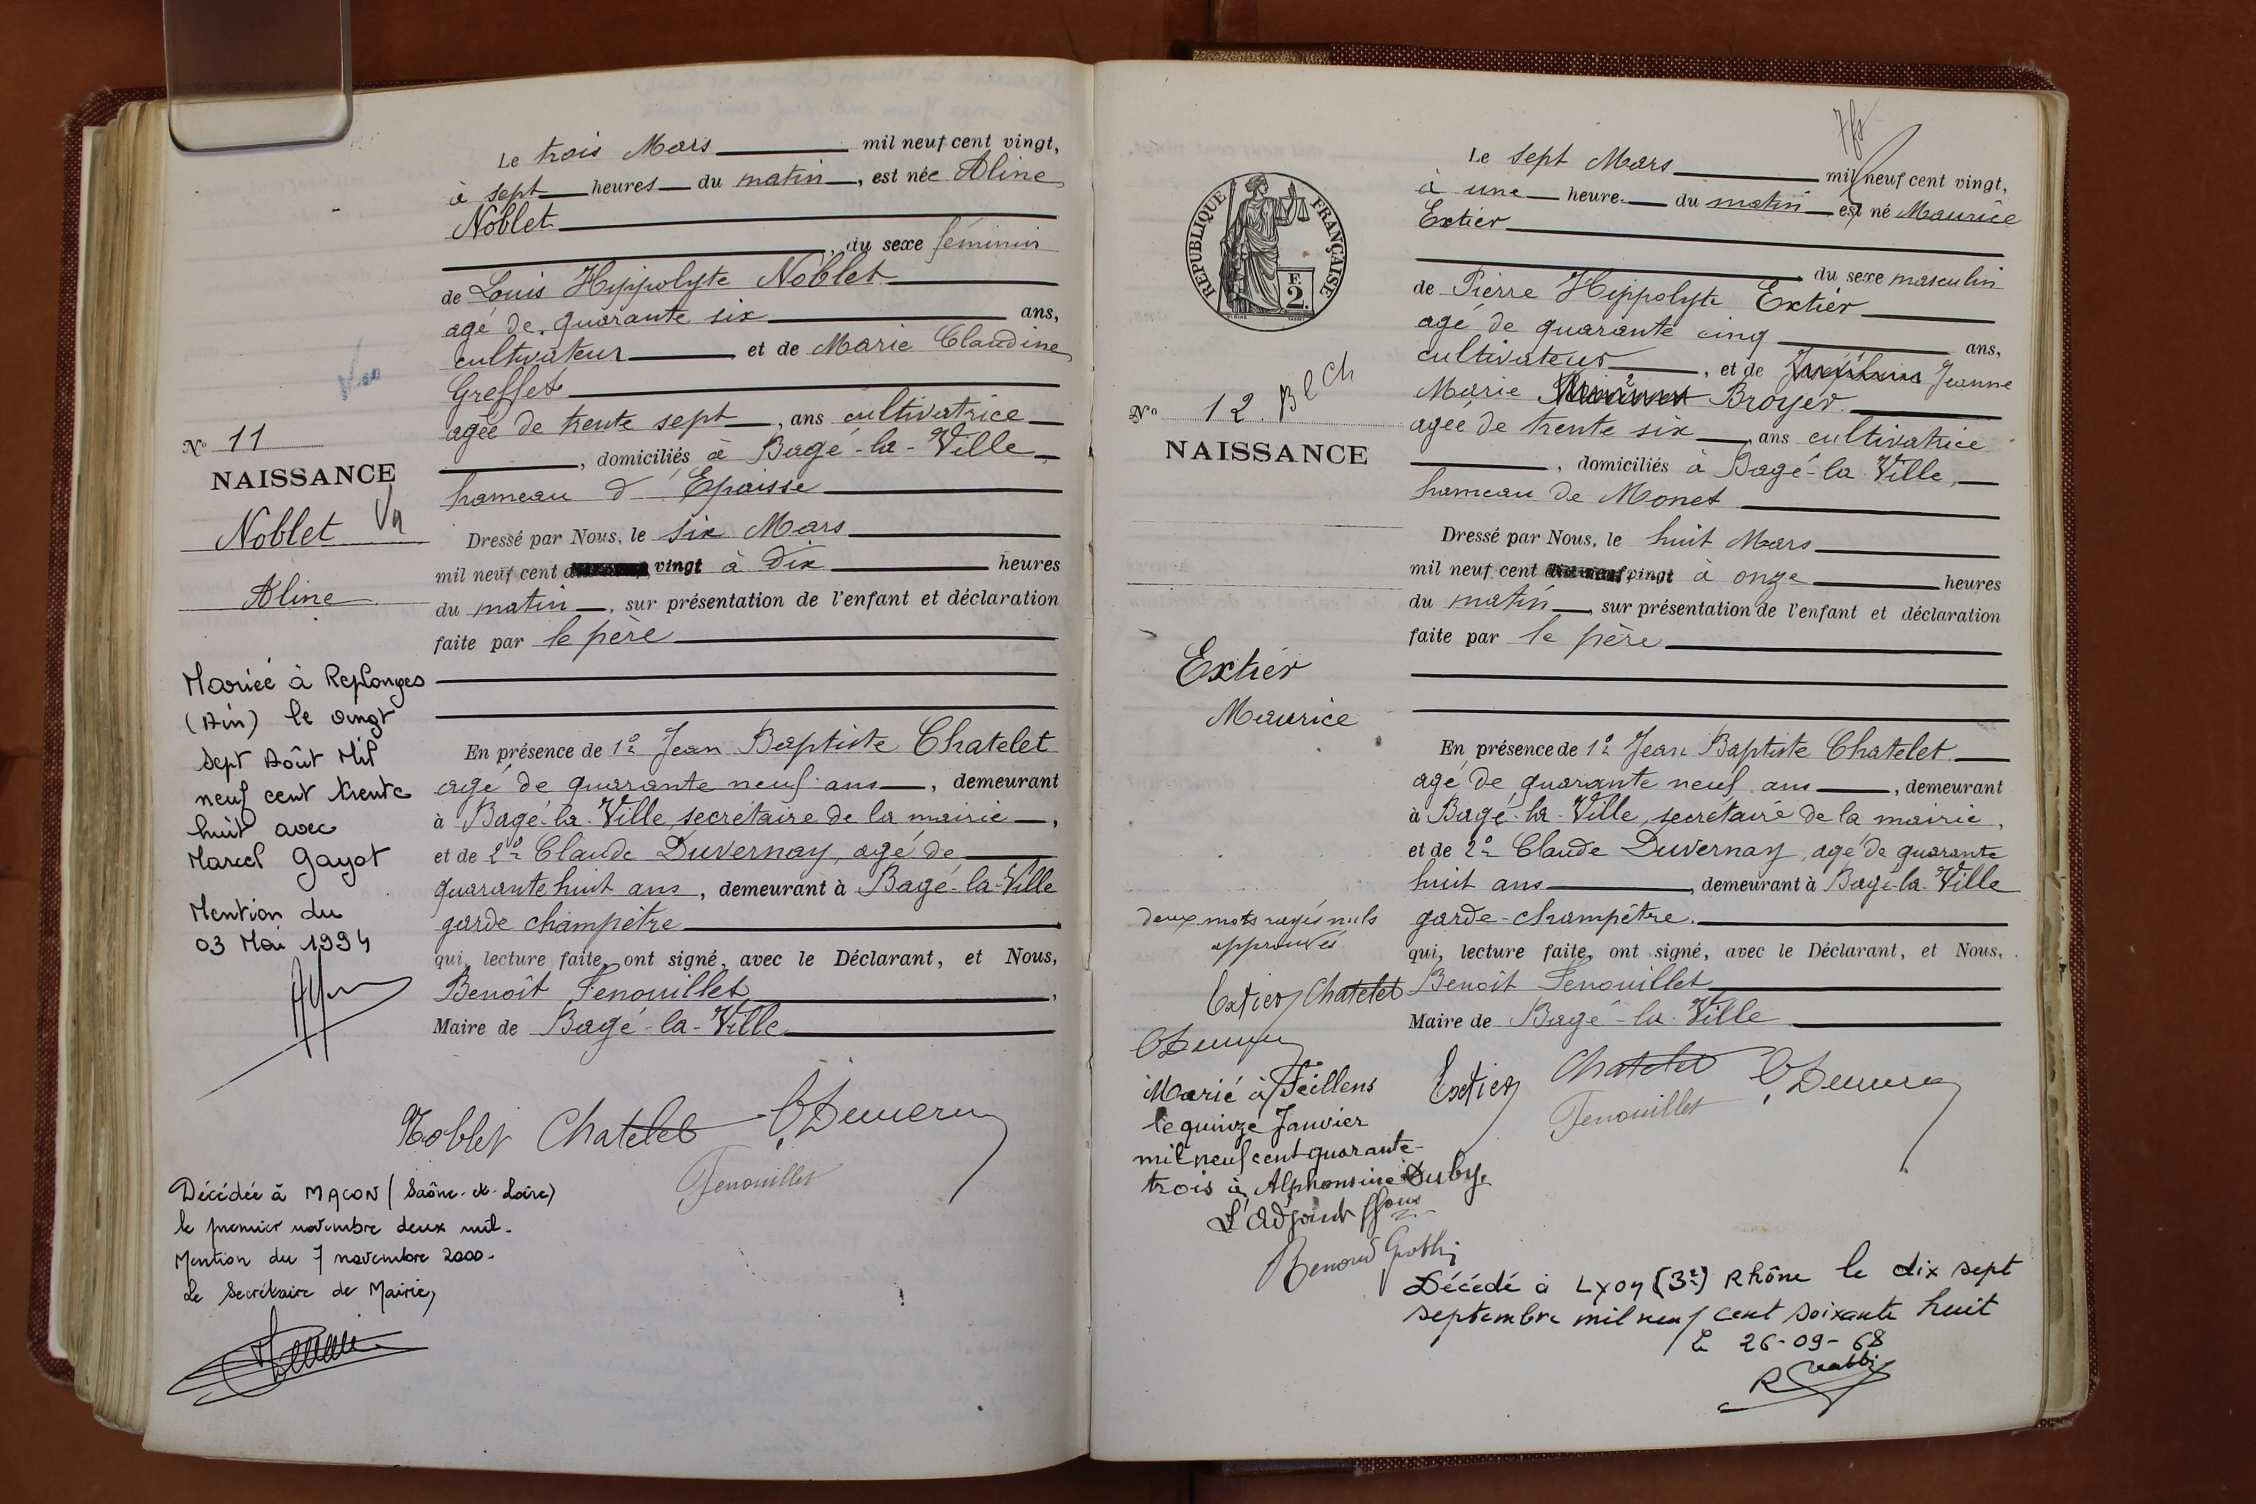 Le trois Mars mil neuf cent vingt,
à sept heures du matin, est née Aline
Noblet
, du sexe féminin
de Louis Hippolyte Noblet
agé de quarante six ans,
cultivateur et de Marie Claudine
Greffet
agée de trente sept, ans cultivatrice
, domiciliés à Bagé-la-Ville,
hameau d'Epaisse
Dressé par Nous, le six Mars
mil neuf cent vingt à dix heures
du matin, sur présentation de l'enfant et déclaration
faite par le père
En présence de 1º Jean Baptiste Chatelet
agé de quarante neuf ans, demeurant
à Bagé-la-Ville, secrétaire de la mairie,
et de 2º Claude Duvernay, agé de
quarante huit ans, demeurant à Bagé-la-Ville
garde champêtre
qui, lecture faite, ont signé, avec le Déclarant, et Nous,
Benoît Fenouillet,
Maire de Bagé-la-Ville
Noblet Chatelet
Fenouillet
Nº 11
NAISSANCE
Noblet
Aline
Mariée à Replonges
(Ain) le vingt
sept Août Mil
neuf cent trente
huit avec
Marcel Gayot
Mention du
03 Mai 1994
Décédée à MACON (Saône-et-Loire)
le premier novembre deux mil.
Mention du 7 novembre 2000.
Le Secrétaire de Mairie,
REPUBLIQUE FRANÇAISE
E.
2.
Le sept Mars mil neuf cent vingt,
à une heure du matin est né Maurice
Extier
du sexe masculin
de Pierre Hippolyte Extier
agé de quarante cinq ans,
cultivateur, et de Jeanne
Marie Broyer
agée de trente six, ans cultivatrice
, domiciliés à Bagé-la-Ville,
hameau de Monet
Dressé par Nous, le huit Mars
mil neuf cent vingt à onze heures
du matin, sur présentation de l'enfant et déclaration
faite par le père
En présence de 1º Jean Baptiste Chatelet
agé de quarante neuf ans, demeurant
à Bagé-la-Ville, secrétaire de la mairie,
et de 2º Claude Duvernay, agé de quarante
huit ans, demeurant à Bagé-la-Ville
garde-champêtre.
qui, lecture faite, ont signé, avec le Déclarant, et Nous,
Benoît Fenouillet
Maire de Bagé-la-Ville
Extier Chatelet
Fenouillet
Nº 12
NAISSANCE
Extier
Maurice
deux mots rayés nuls
approuvés
Extier Chatelet
Marié à Feillens
le quinze Janvier
mil neuf cent quarante-
trois à Alphonsine Duby.
L'Adjoint
Décédé à Lyon (3e) Rhône le dix sept
septembre mil neuf cent soixante huit
le 26-09-68